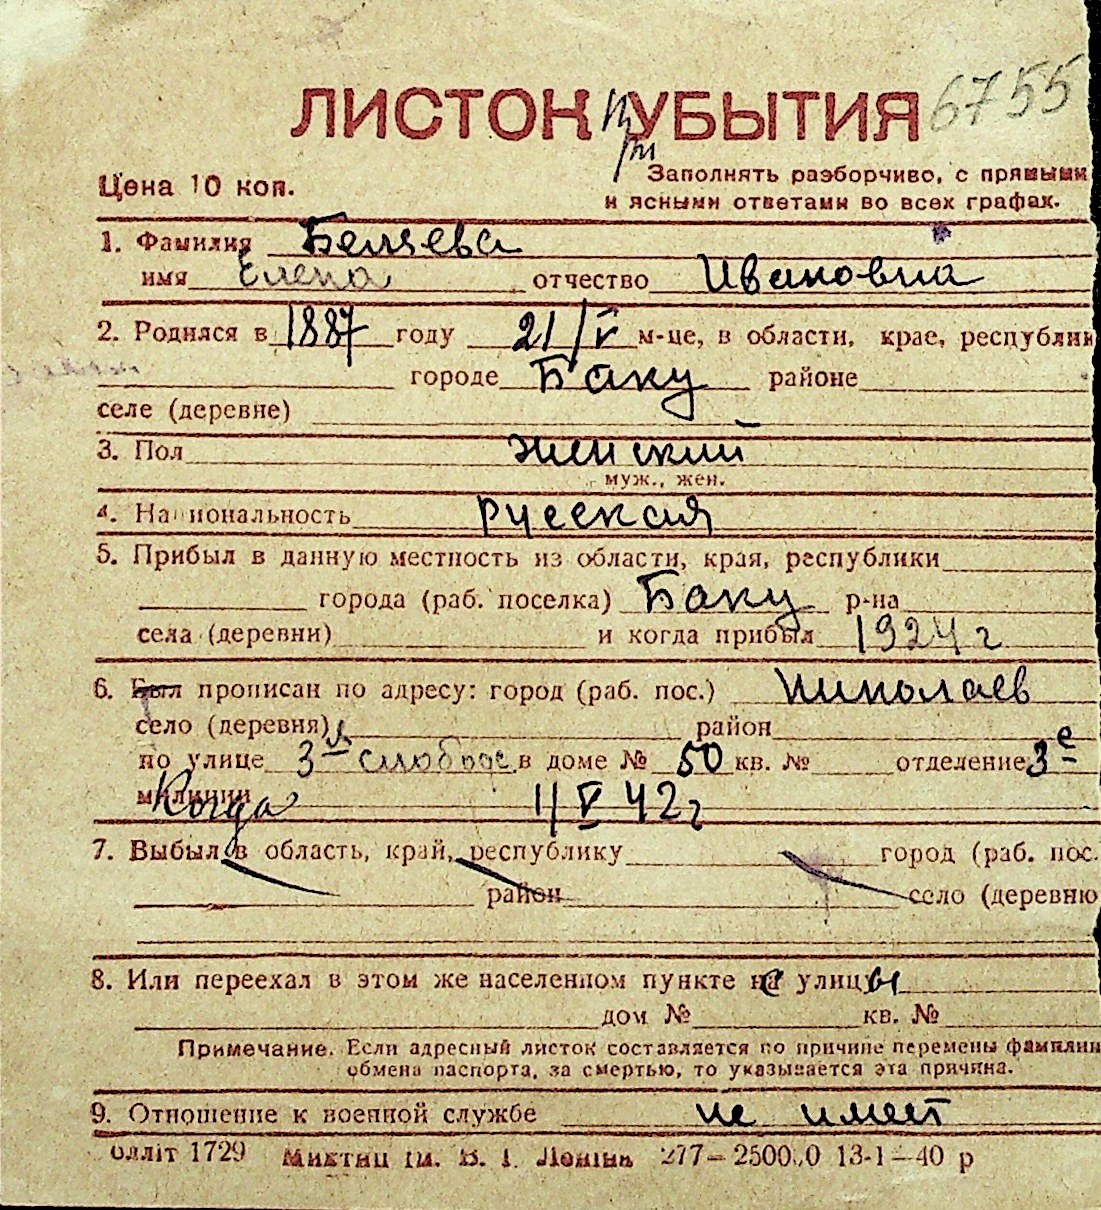 6755
ЛИСТОК При УБЫТИЯ
Цена 10 коп.
Заполнять разборчиво, с прямыми
и ясными ответами во всех графах.
1. Фамилия Беляева
имя Елена отчество Ивановна
2. Родился в 1887 году 21/V м-це, в области, крае, республик
городе Баку районе
селе (деревне)
3. Пол женский
муж., жен.
4. Национальность русская
5. Прибыл в данную местность из области, края, республики
города (раб. поселка) Баку р-на
села (деревни) и когда прибыл 1924 г
6. Был прописан по адресу: город (раб. пос.) Николаев
село (деревня) район
по улице 3я слободс. в доме № 50 кв. № отделение 3е
милиции Когда 1/V 42 г
7. Выбыл в область, край, республику город (раб. пос.
район село (деревню
8. Или переехал в этом же населенном пункте с улицы
дом № кв. №
Примечание. Если адресный листок составляется по причине перемены фамилии
обмена паспорта, за смертью, то указывается эта причина.
9. Отношение к военной службе не имеет
1729 277—2500.0 13-1—40 р